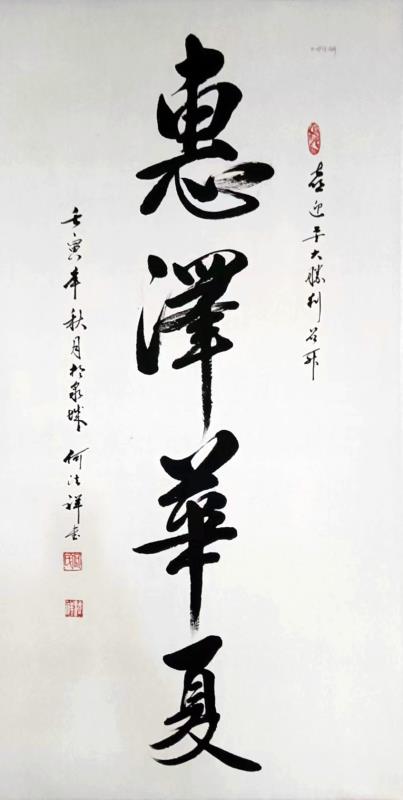 喜迎廿大勝利召开
惠澤華夏
壬寅年秋月於泉城 何法祥書